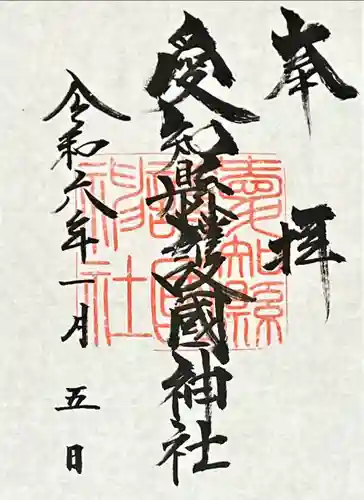 奉拝
愛知縣護國神社
令和六年一月五日
愛知縣
護國
神社